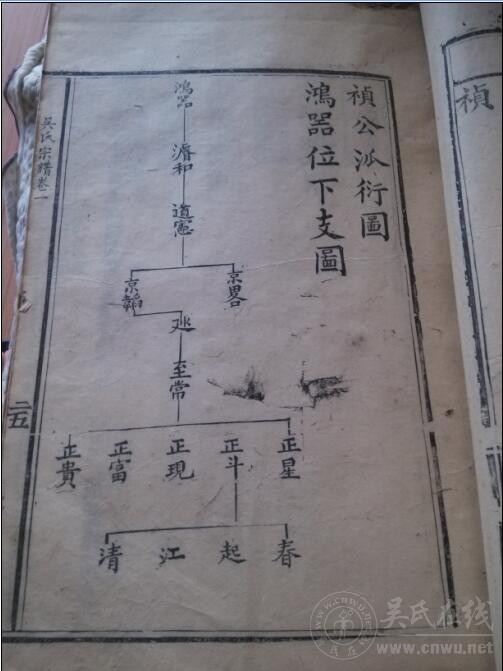 禎
禎公派衍圖
鴻器位下支圖
鴻器
濬和
道憲
京畧
京翰
巡
至常
正星
正斗
正現
正富
正貴
春
起
江
清
吳氏宗譜卷一
二五
吴氏在线
www.cnwu.net